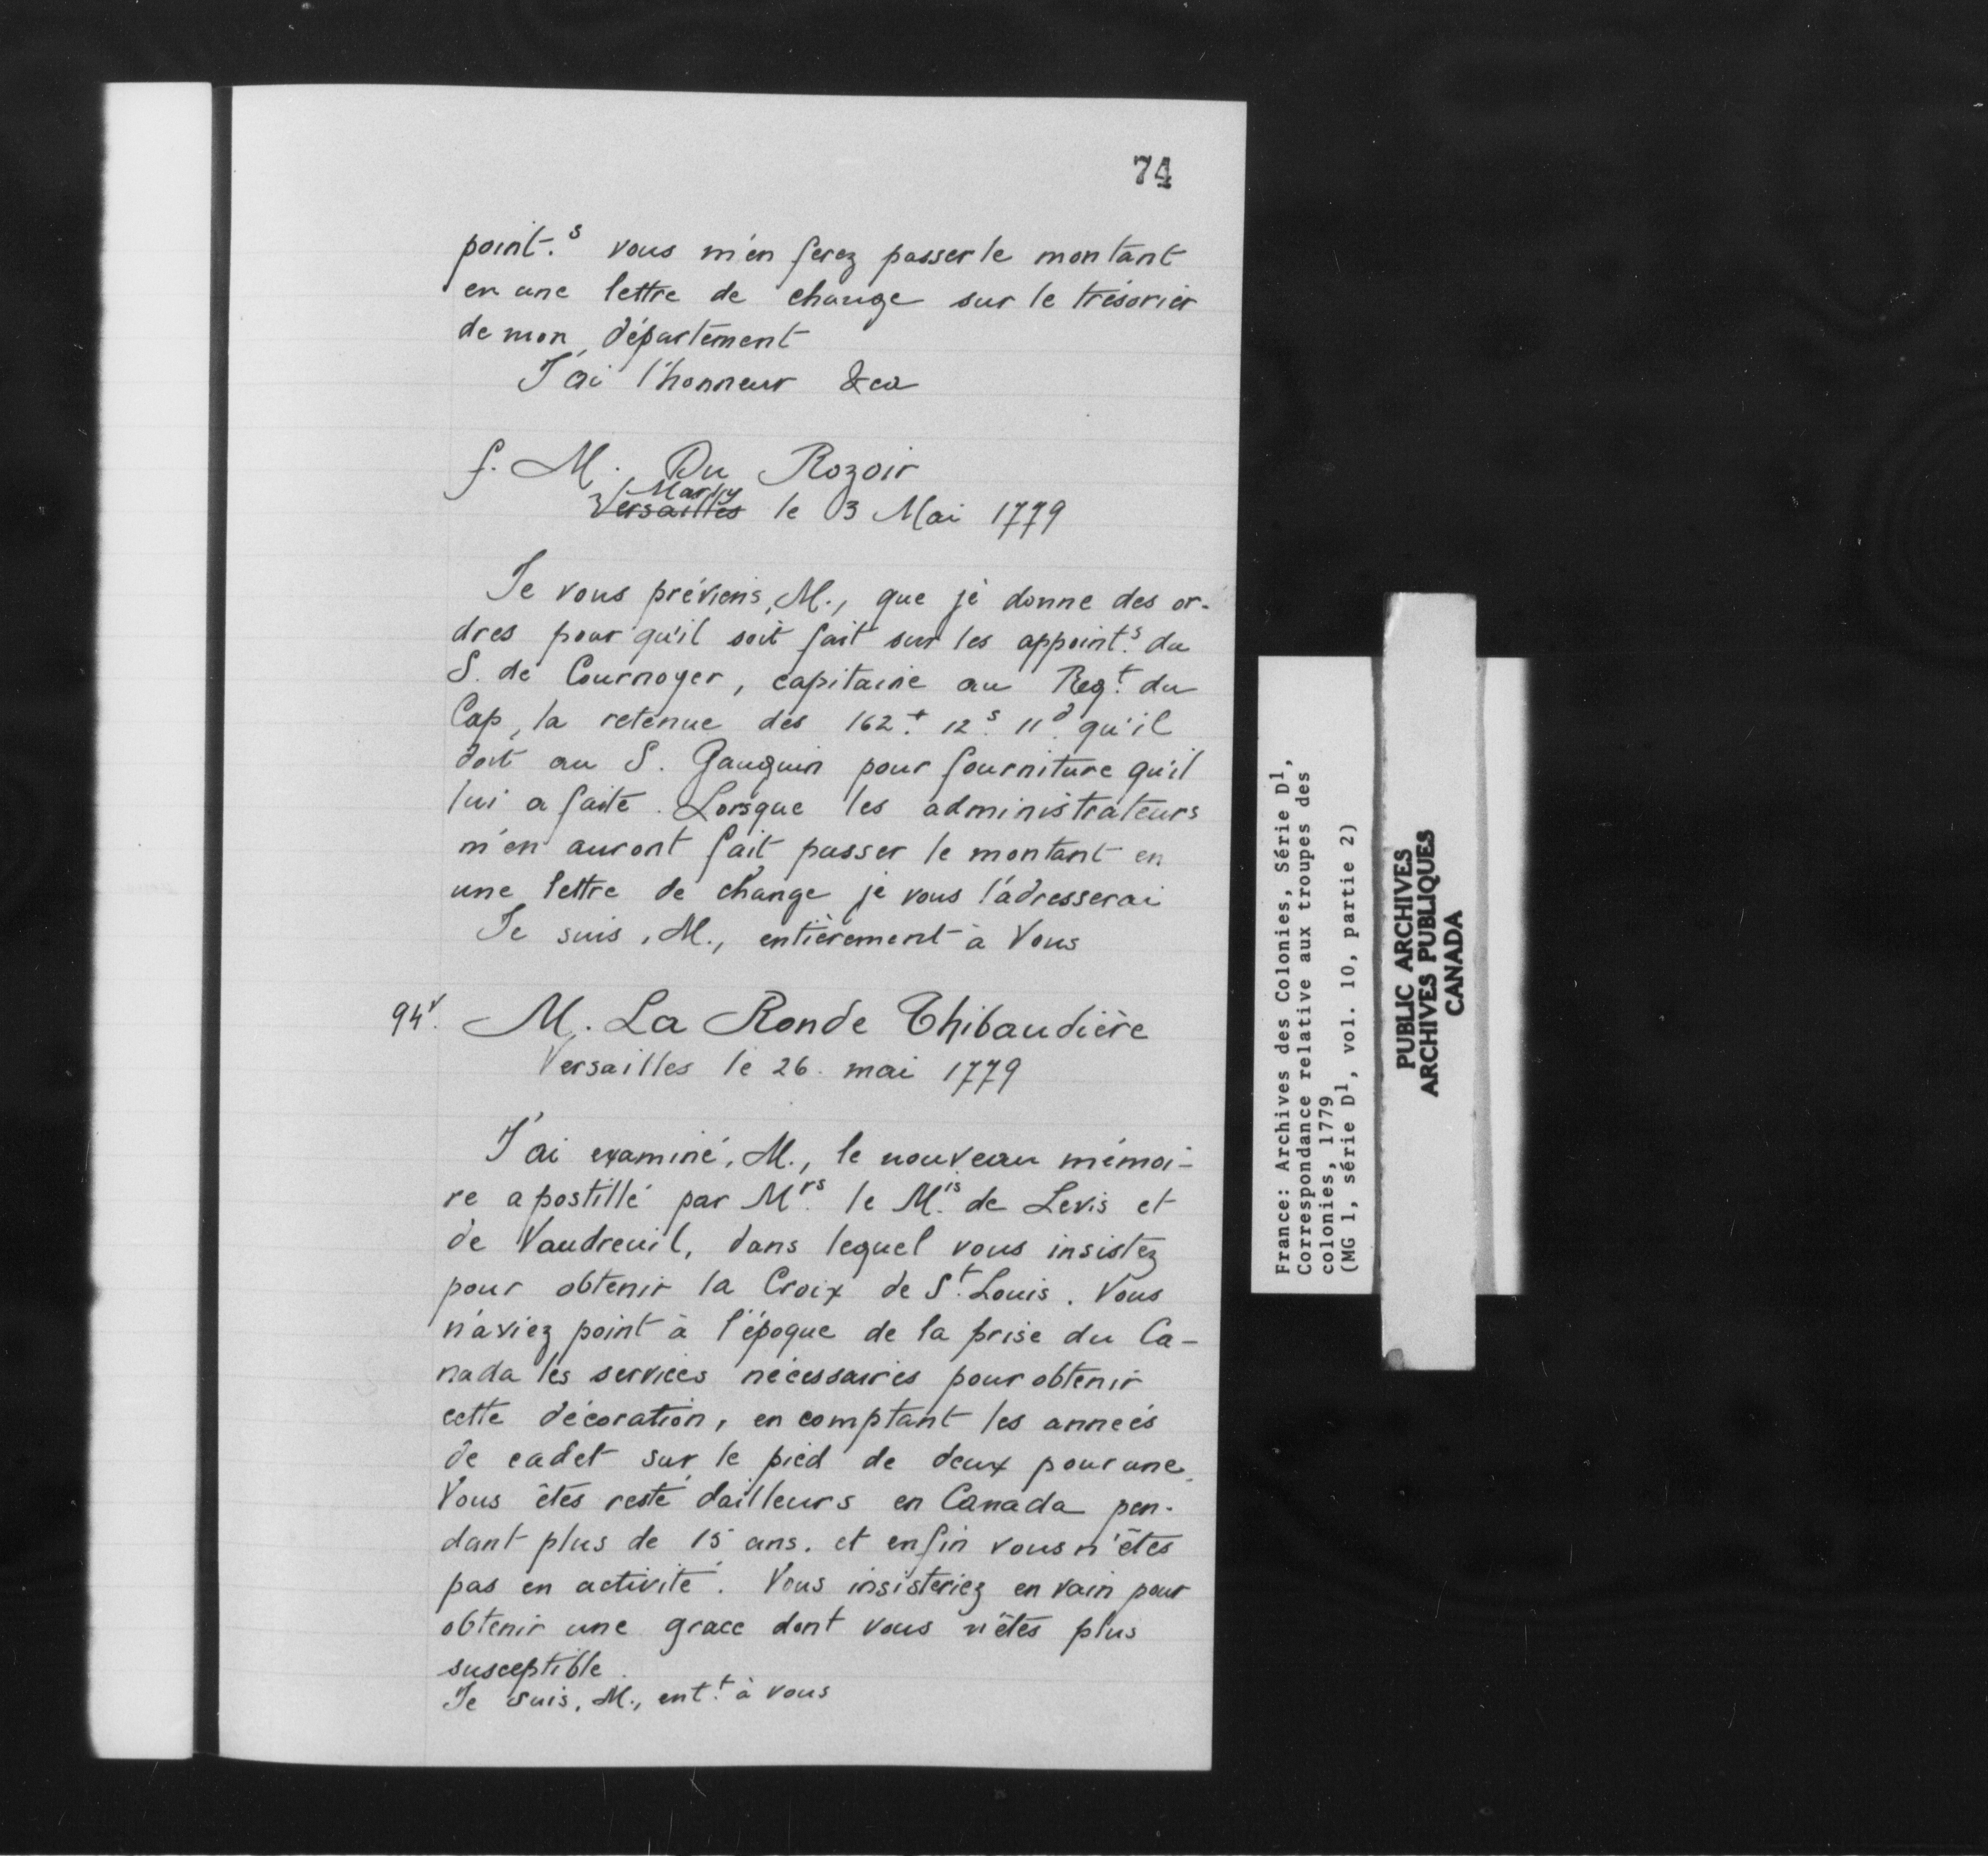 74
point.s vous m'en ferez passer le montant
en une lettre de change sur le trésorier
de mon département
J'ai l'honneur &ca
f. M. Du Rozoir
Marly
Versailles le 3 Mai 1779
Je vous préviens, M., que je donne des or-
dres pour qu'il soit fait sur les appoint.s du
S. de Cournoyer, capitaine au Reg.t du
Cap, la retenue des 162.+ 12.s 11.d qu'il
doit au S. Gauguin pour fourniture qu'il
lui a faite. Lorsque les administrateurs
m'en auront fait passer le montant en
une lettre de change je vous l'adresserai
Je suis, M., entièrement à Vous
94v. M. La Ronde Thibaudière
Versailles le 26. mai 1779
J'ai examiné, M., le nouveau mémoi-
re apostillé par M.rs le M.is de Levis et
de Vaudreuil, dans lequel vous insistez
pour obtenir la Croix de S.t Louis. Vous
n'aviez point à l'époque de la prise du Ca-
nada les services nécessaires pour obtenir
cette décoration, en comptant les années
de cadet sur le pied de deux pour une.
Vous êtes resté dailleurs en Canada pen-
dant plus de 15 ans. et enfin vous n'êtes
pas en activité. Vous insisteriez en vain pour
obtenir une grace dont vous n'êtes plus
susceptible.
Je suis, M., ent.t à vous
France: Archives des Colonies, Série D1,
Correspondance relative aux troupes des
colonies, 1779
(MG 1, série D1, vol. 10, partie 2)
PUBLIC ARCHIVES
ARCHIVES PUBLIQUES
CANADA